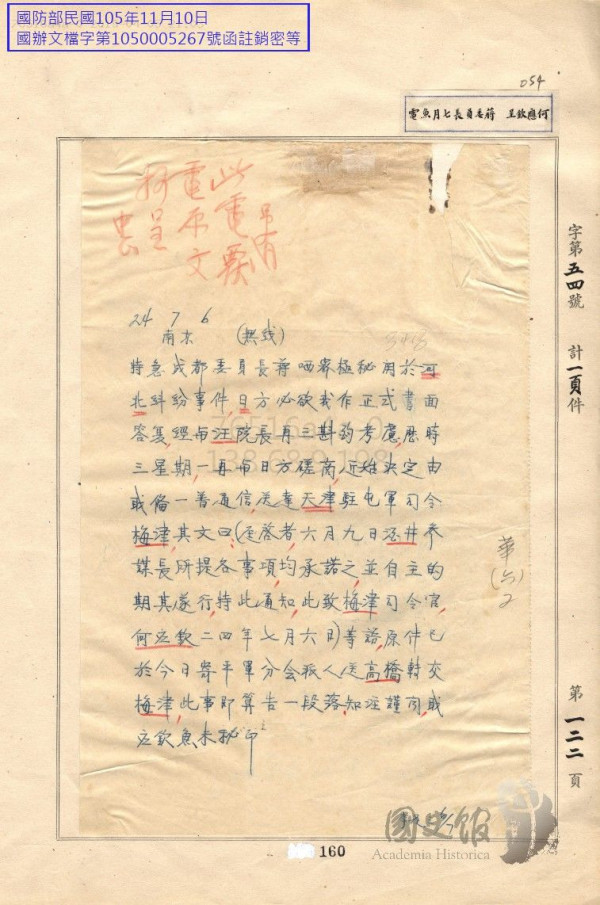 國防部民國105年11月10日
國辦文檔字第1050005267號函註銷密等
054
何應欽呈 蔣委員長七月魚電
此電覆
電原文
呈
24 7 6
南京 (無线)
特急成都委員長蔣 密極秘関於河
北糾紛事件日方必欲我作正式書面
答复經與汪院長再三斟酌考慮歷時
三星期,一再與日方磋商,近始決定由
職俻一普通信,送達天津駐屯軍司令
梅津,其文曰,(逕啓者,六月九日酒井參
謀長所提各事項,均承諾之,並自主的
期其遂行,特此通知,此致梅津司令官,
何应欽二四年七月六日)等語,原件已
於今日寄平軍分会派人送高橋轉交
梅津,此事即算告一段落,知注謹聞,職
应欽魚未秘印
字第五四號 計一頁件
第一二二頁
160
國史館
Academia Historica